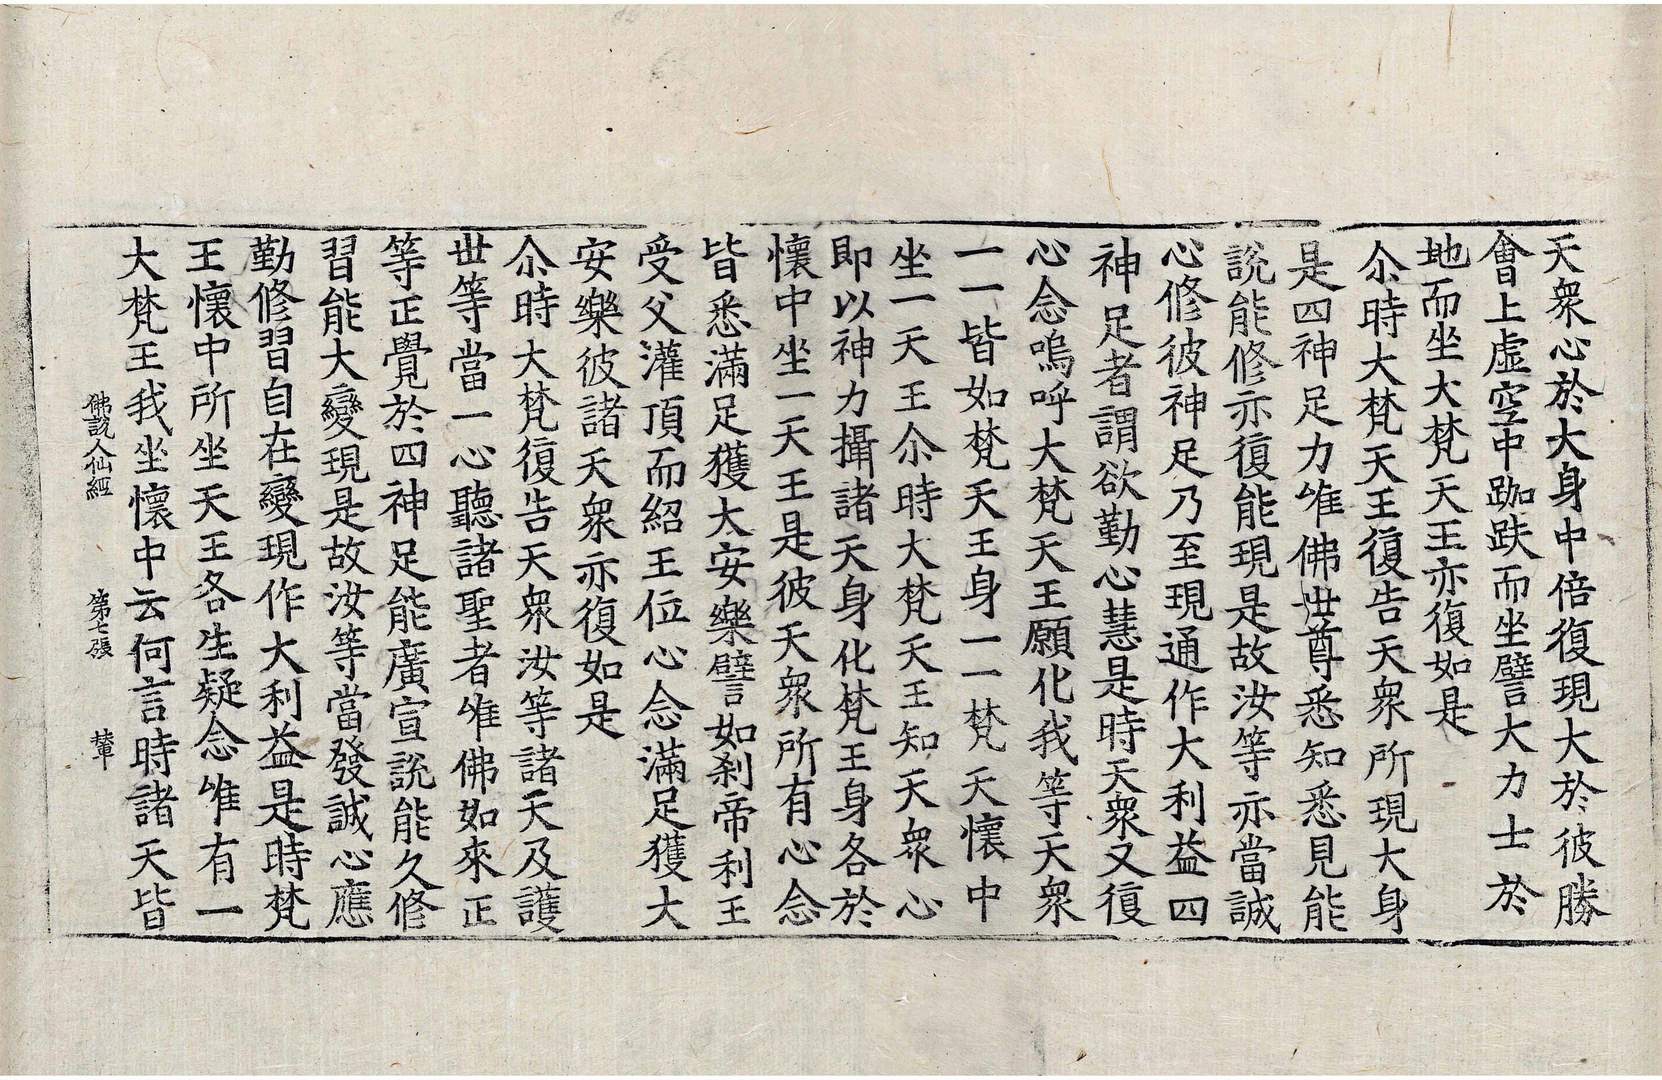 天衆心於大身中倍復現大於彼勝
會上虛空中跏趺而坐譬大力士於
地而坐大梵天王亦復如是
尒時大梵天王復告天衆所現大身
是四神足力唯佛世尊悉知悉見能
說能修亦復能現是故汝等亦當誠
心修彼神足乃至現通作大利益四
神足者謂欲勤心慧是時天衆又復
心念嗚呼大梵天王願化我等天衆
一一皆如梵天王身一一梵天懷中
坐一天王尒時大梵天王知天衆心
即以神力攝諸天身化梵王身各於
懷中坐一天王是彼天衆所有心念
皆悉滿足獲大安樂譬如剎帝利王
受父灌頂而紹王位心念滿足獲大
安樂彼諸天衆亦復如是
尒時大梵復告天衆汝等諸天及護
世等當一心聽諸聖者唯佛如來正
等正覺於四神足能廣宣說能久修
習能大變現是故汝等當發誠心應
勤修習自在變現作大利益是時梵
王懷中所坐天王各生疑念唯有一
大梵王我坐懷中云何言時諸天皆
佛說人仙經 第七張 輦